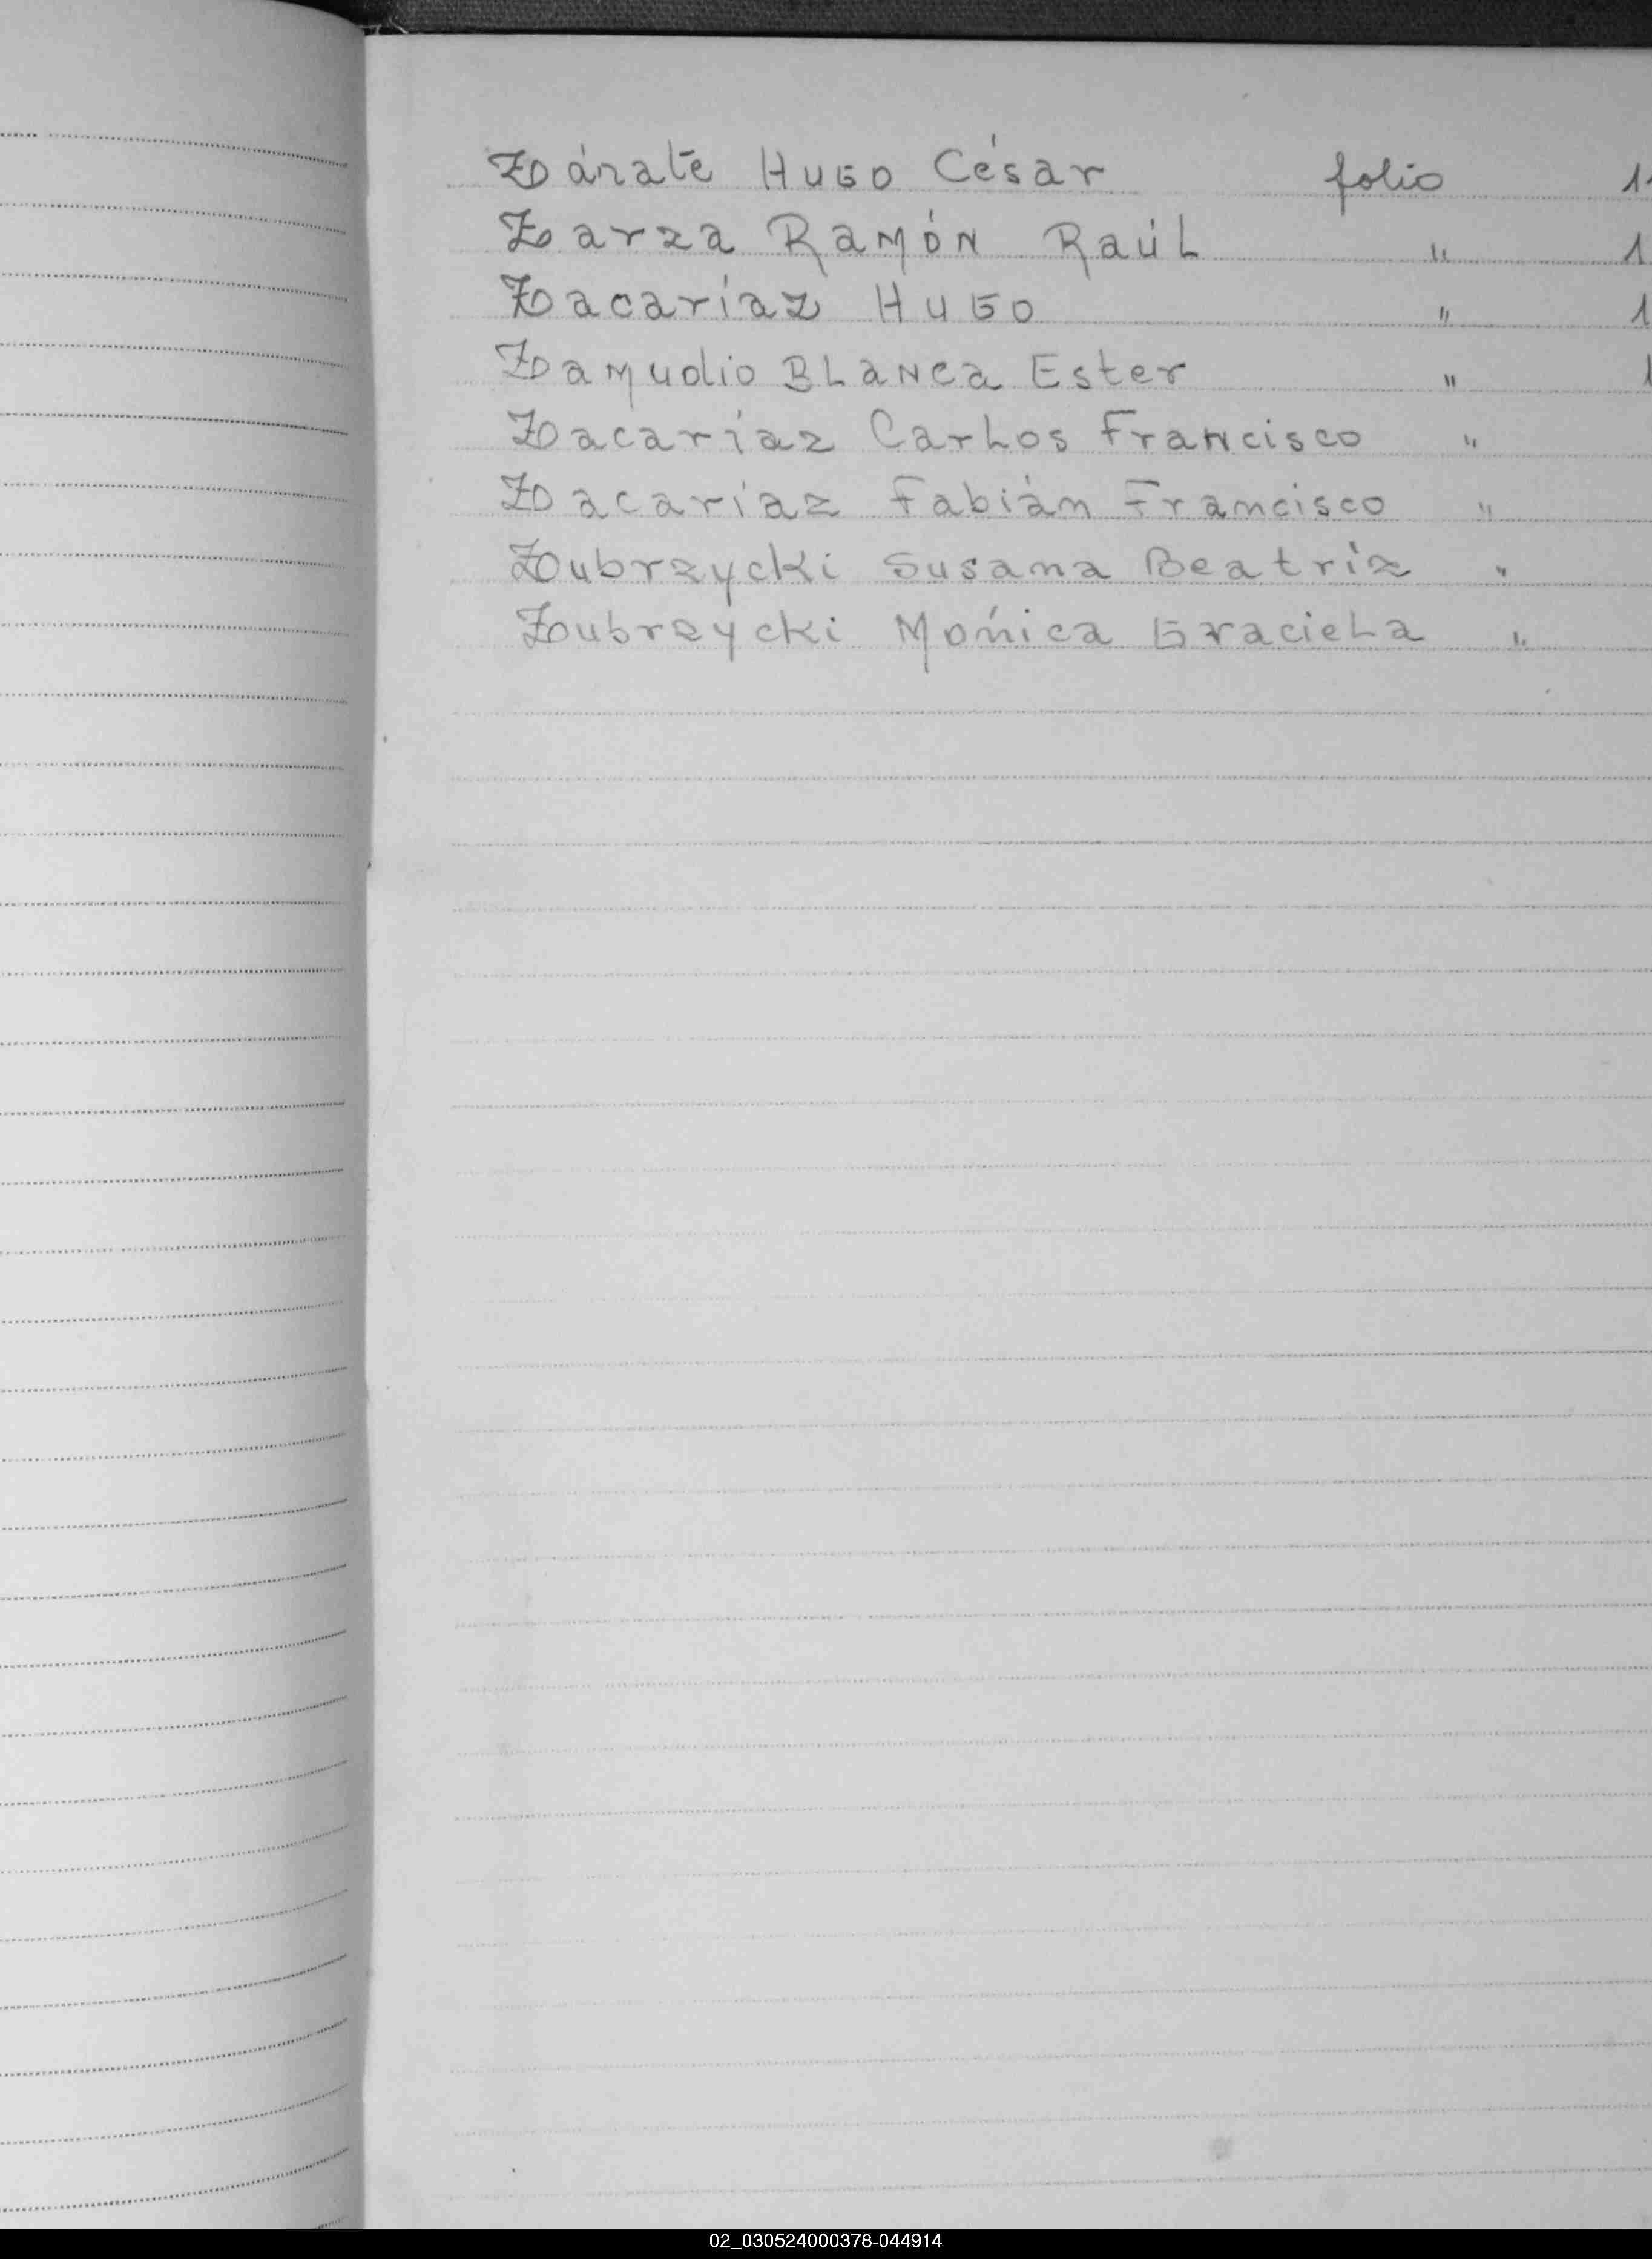 Zárate Hugo César folio 1
Zarza Ramón Raúl " 1
Zacaríaz Hugo " 1
Zamudio Blanca Ester " 1
Zacaríaz Carlos Francisco "
Zacaríaz Fabián Francisco "
Zubrzycki Susana Beatríz "
Zubrzycki Mónica Graciela "
02_030524000378-044914